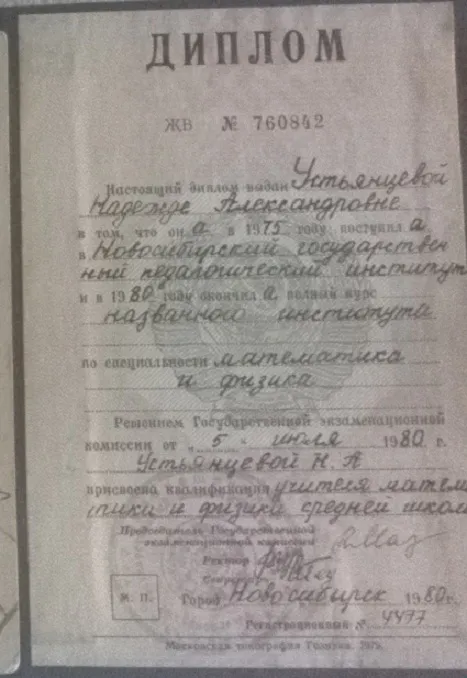 ДИПЛОМ
ЖВ № 760842
Настоящий диплом выдан Устьянцевой
Надежде Александровне
в том, что он а в 1975 году поступил а
в Новосибирский государствен
ный педагогический институт
и в 1980 году окончил а полный курс
названного института
по специальности математика
и физика
Решением Государственной экзаменационной
комиссии от „5“ июля 1980 г.
Устьянцевой Н. А
присвоена квалификация учителя матем
тики и физики средней школ
Председатель Государственной
экзаменационной комиссии
Ректор
Секретарь
М. П. Город Новосибирск 1980 г.
Регистрационный № 4477
Московская типография Гознака. 1979.